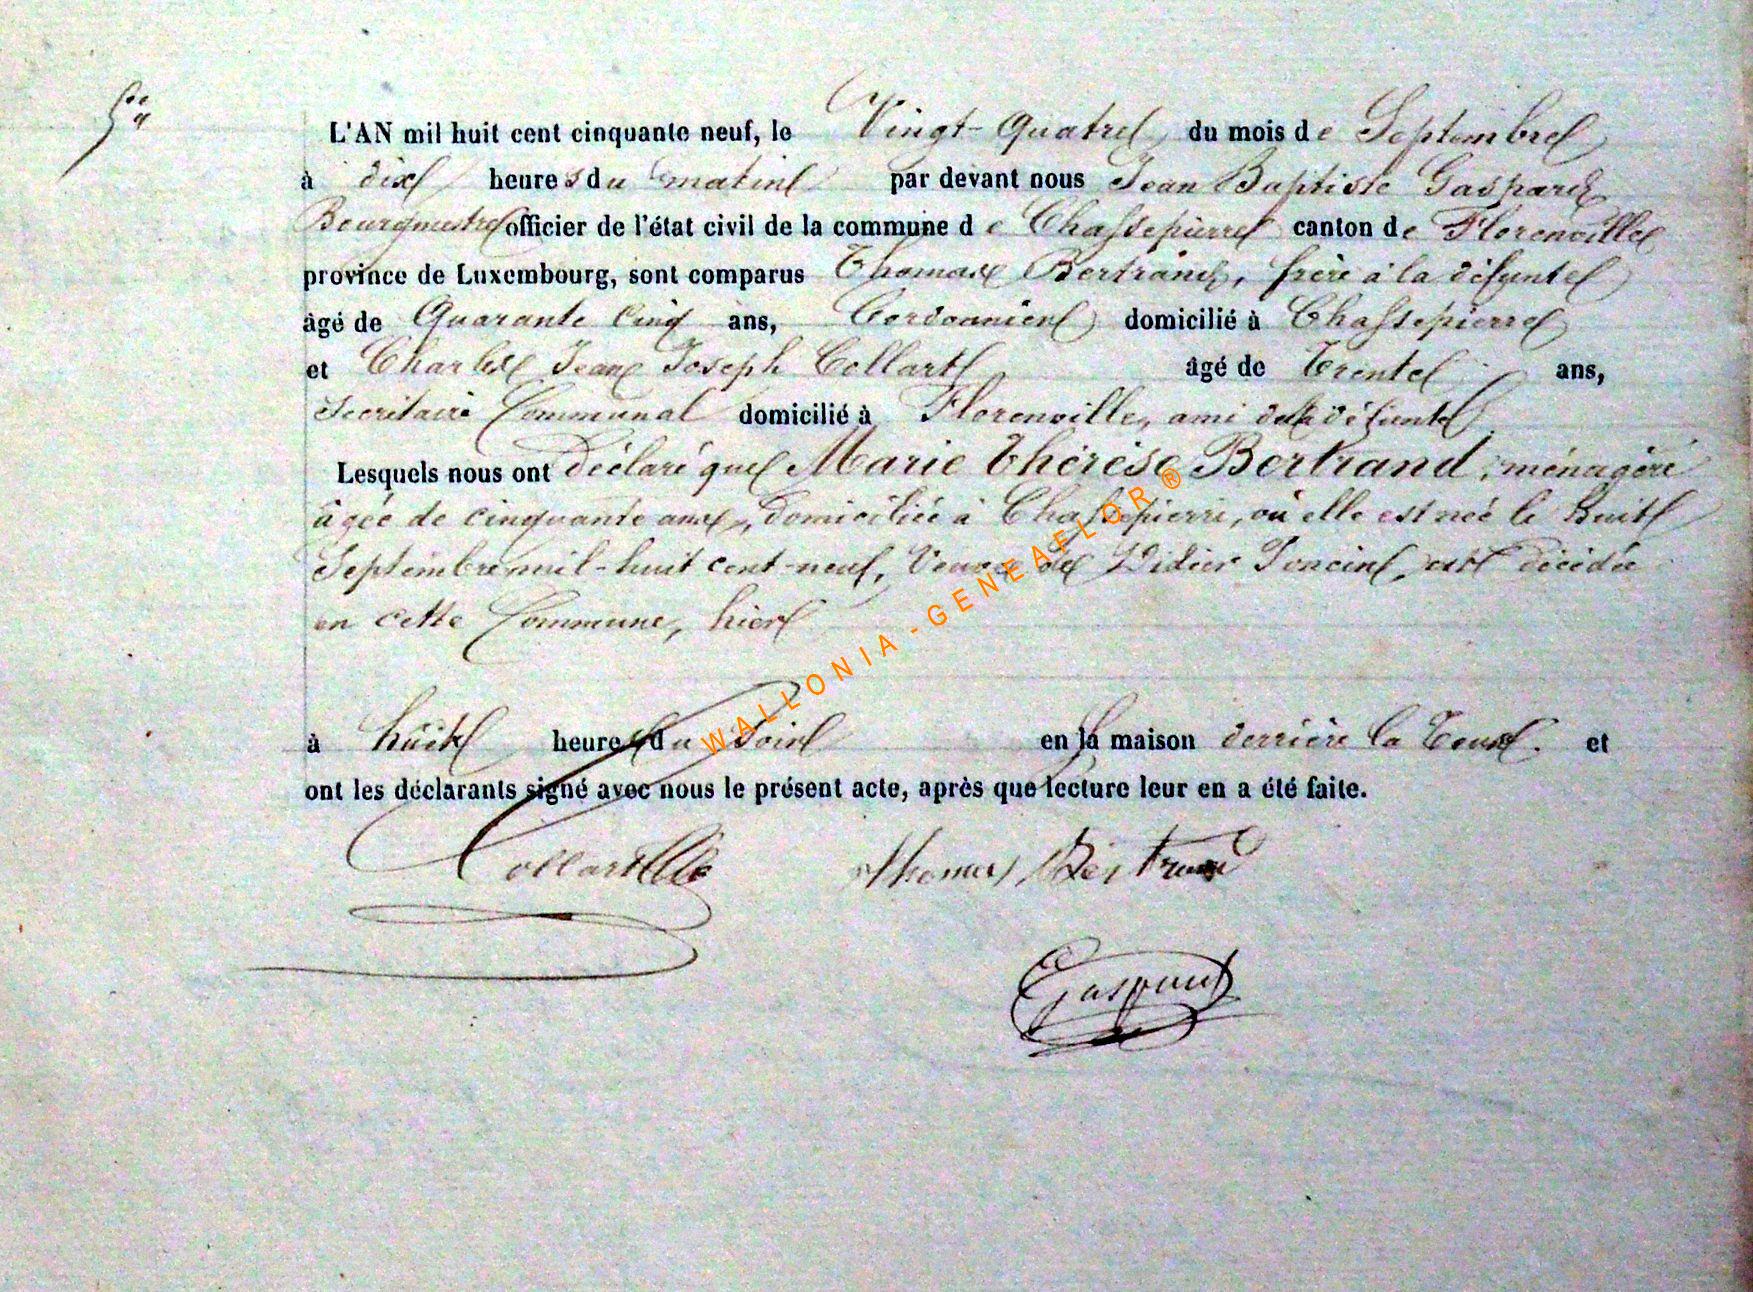 5e
L'AN mil huit cent cinquante neuf, le Vingt-Quatre du mois de Septembre
à dix heures du matin par devant nous Jean Baptiste Gaspard
Bourgmestre officier de l'état civil de la commune de Chassepierre canton de Florenville
province de Luxembourg, sont comparus Thomas Bertrand, frère à la défunte
âgé de Quarante Cinq ans, Cordonnier domicilié à Chassepierre
et Charles Jean Joseph Collart âgé de Trente ans,
Secrétaire Communal domicilié à Florenville, ami de la défunte
Lesquels nous ont déclaré que Marie Thérèse Bertrand, ménagère
âgée de cinquante ans, domiciliée à Chassepierre, où elle est née le huit
Septembre mil-huit cent-neuf, Veuve de Didier Poncin, est décédée
en cette Commune, hier
à huit heures du soir en la maison derrière la Cour. et
ont les déclarants signé avec nous le présent acte, après que lecture leur en a été faite.
Collart Thomas Bertrand
Gaspard
WALLONIA - GENEAFLOR ®